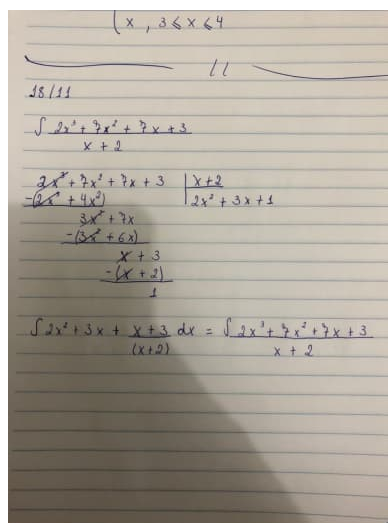 { x , 3 ≤ x ≤ 4
//
18/11
∫ 2x³ + 7x² + 7x + 3
x + 2
2x³ + 7x² + 7x + 3 | x+2
-(2x³ + 4x²) 2x² + 3x + 1
3x² + 7x
-(3x² + 6x)
x + 3
-(x + 2)
1
∫ 2x² + 3x + x+3 dx = ∫ 2x³ + 7x² + 7x + 3
(x+2) x + 2